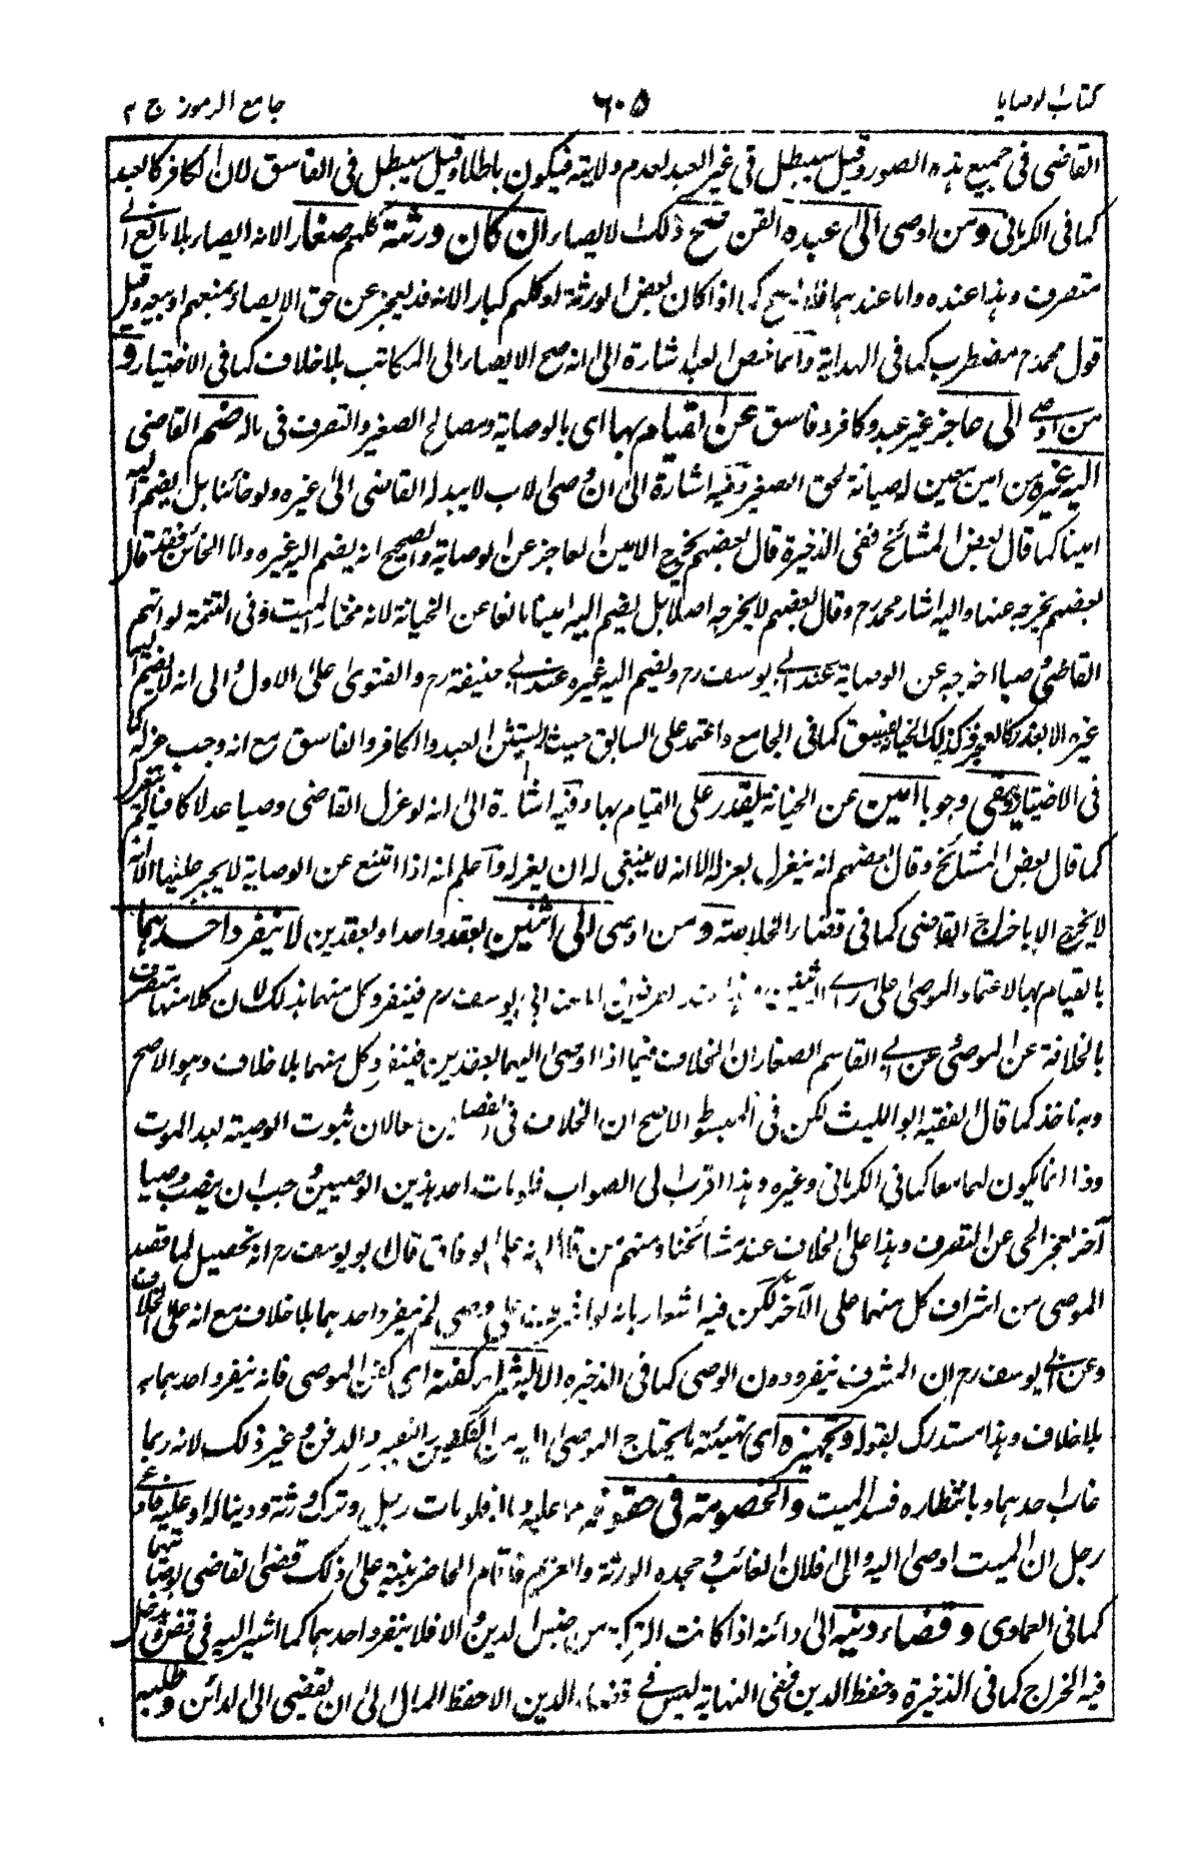 كتاب الوصايا ٦٠٥ جامع الرموز ج ٢
القاضى فى جميع هذه الصور وقيل سيبطل فى غير العبد لعدم ولايته فيكون باطلا وقيل سيبطل فى الفاسق لان الكافر كالعبد
كما فى الكرمانى ومن اوصى الى عبده القن صح ذلك الايصاء ان كان ورثته كلهم صغارا لانه ايصاء بلا مانع الى
متصرف وهذا عنده واما عندهما فلا يصح كما اذا كان بعض الورثة او كلهم كبارا لانه قد يعجز عن حق الايصاء بمنعهم او بيعه وقيل
قول محمد رح مضطرب كما فى الهداية وانما خص العبد اشارة الى انه صح الايصاء الى المكاتب بلا خلاف كما فى الاختيار و
من اوصى الى عاجز غير عبد وكافر وفاسق عن القيام بها اى بالوصاية ومصالح الصغير والتصرف فى ماله ضم القاضى
اليه غيره من امين معين لصيانة لحق الصغير وفيه اشارة الى ان وصى الاب لا يبدله القاضى الى غيره ولو خائنا بل يضم اليه
امينا كما قال بعض المشائخ ففى الذخيرة قال بعضهم يخرج الامين العاجز عن الوصاية والصحيح انه يضم اليه غيره واما الخائن فقد قال
بعضهم يخرجه عنها واليه اشار محمد رح وقال بعضهم لا يخرجه اصلا بل يضم اليه امينا مانعا عن الخيانة لانه مختار الميت وفى التتمة لو اتهم
القاضى وصيا اخرجه عن الوصاية عند ابى يوسف رح ويضم اليه غيره عند ابى حنيفة رح والفتوى على الاول والى انه لا يضم اليه
غيره الا بعذر كالعجز وكذلك الخيانة وفسق كما فى الجامع واعتمد على السابق حيث لم يستثن العبد والكافر والفاسق مع انه وجب عزله كما
فى الاختيار ويبقى وجوبا امين عن الخيانة يقدر على القيام بها وفيه اشارة الى انه لو عزل القاضى وصيا عدلا كافيا لم ينعزل
كما قال بعض المشائخ وقال بعضهم انه ينعزل بعزله الا انه لا ينبغى له ان يعزله واعلم انه اذا امتنع عن الوصاية لا يجبر عليها الا انه
لا يخرج الا باخراج القاضى كما فى قضاء الخلاصة ومن اوصى الى اثنين بعقد واحد او بعقدين لا ينفرد احدهما
بالقيام بها لاعتماد الموصى على راى الشفيقين وهذا عند الطرفين اما عند ابى يوسف رح فينفرد كل منهما بذلك لان كلا منهما متصرف
بالخلافة عن الموصى وعن ابى القاسم الصفار ان الخلاف فيما اذا اوصى اليهما بعقدين فينفرد كل منهما بلا خلاف وهو الاصح
وبه ناخذ كما قال الفقيه ابو الليث لكن فى المبسوط الاصح ان الخلاف فى الفصلين لان ثبوت الوصية بعد الموت
وذا انما يكون لهما معا كما فى الكرمانى وغيره وهذا اقرب الى الصواب فلو مات احد هذين الوصيين وجب ان ينصب وصيا
آخر لعجز الحى عن التصرف وهذا على الخلاف عند مشائخنا ومنهم من قال انه على الوفاق قال ابو يوسف رح انه تحصيل لما قصد
الموصى من اشراف كل منهما على الآخر لكن فيه اشعار بانه لو اشرف على وصى لم ينفرد احدهما بلا خلاف مع انه على الخلاف
وعن ابى يوسف رح ان المشرف ينفرد دون الوصى كما فى الذخيرة الا بشراء كفنه اى كفن الموصى فانه ينفرد احدهما به
بلا خلاف وهذا مستدرك بقوله وتجهيزه اى تهيئة ما يحتاج الموصى اليه من التكفين والدفن وغير ذلك لانه ربما
غاب احدهما وبانتظاره فسد الميت والخصومة فى حقوقه مما عليه وله فلو مات رجل وترك ورثة ودينا له او عليه فادعى
رجل ان الميت اوصى اليه والى فلان الغائب وجحده الورثة والغريم فاقام الحاضر بينة على ذلك قضى القاضى لوصايتهما
كما فى العمادى وقضاء دينه الى دائنه اذا كانت التركة من جنس الدين والا فلا ينفرد احدهما كما اشير اليه فى
فيه الخراج كما فى الذخيرة وحفظ الدين ففى النهاية ليس فى الدين الا حفظ المال الى ان يقضى الى الدائن وطلبه